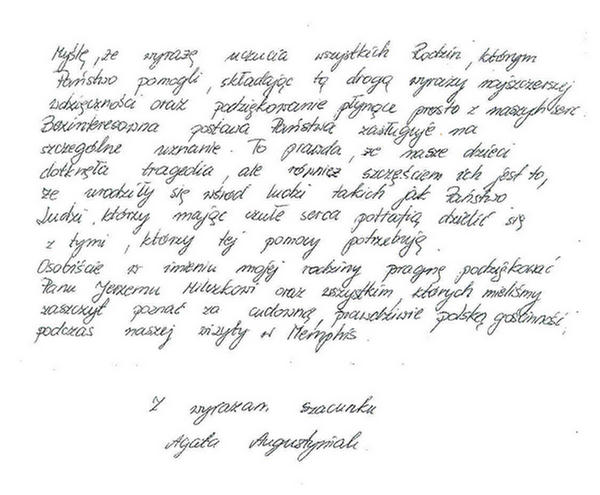 Myślę, że wyrażę uczucia wszystkich Rodzin, którym
Państwo pomogli, składając tą drogą wyrazy najszczerszej
wdzięczności oraz podziękowanie płynące prosto z naszych serc.
Bezinteresowna postawa Państwa zasługuje na
szczególne uznanie. To prawda, że nasze dzieci
dotknęła tragedia, ale również szczęściem ich jest to,
że urodziły się wśród ludzi takich jak Państwo.
Ludzi, którzy mając czułe serca potrafią dzielić się
z tymi, którzy tej pomocy potrzebują.
Osobiście w imieniu mojej rodziny pragnę podziękować
Panu Jerzemu oraz wszystkim, których mieliśmy
zaszczyt poznać za cudowną, prawdziwie polską gościnność,
podczas naszej wizyty w Memphis.
Z wyrazami szacunku
Agata Augustyniak